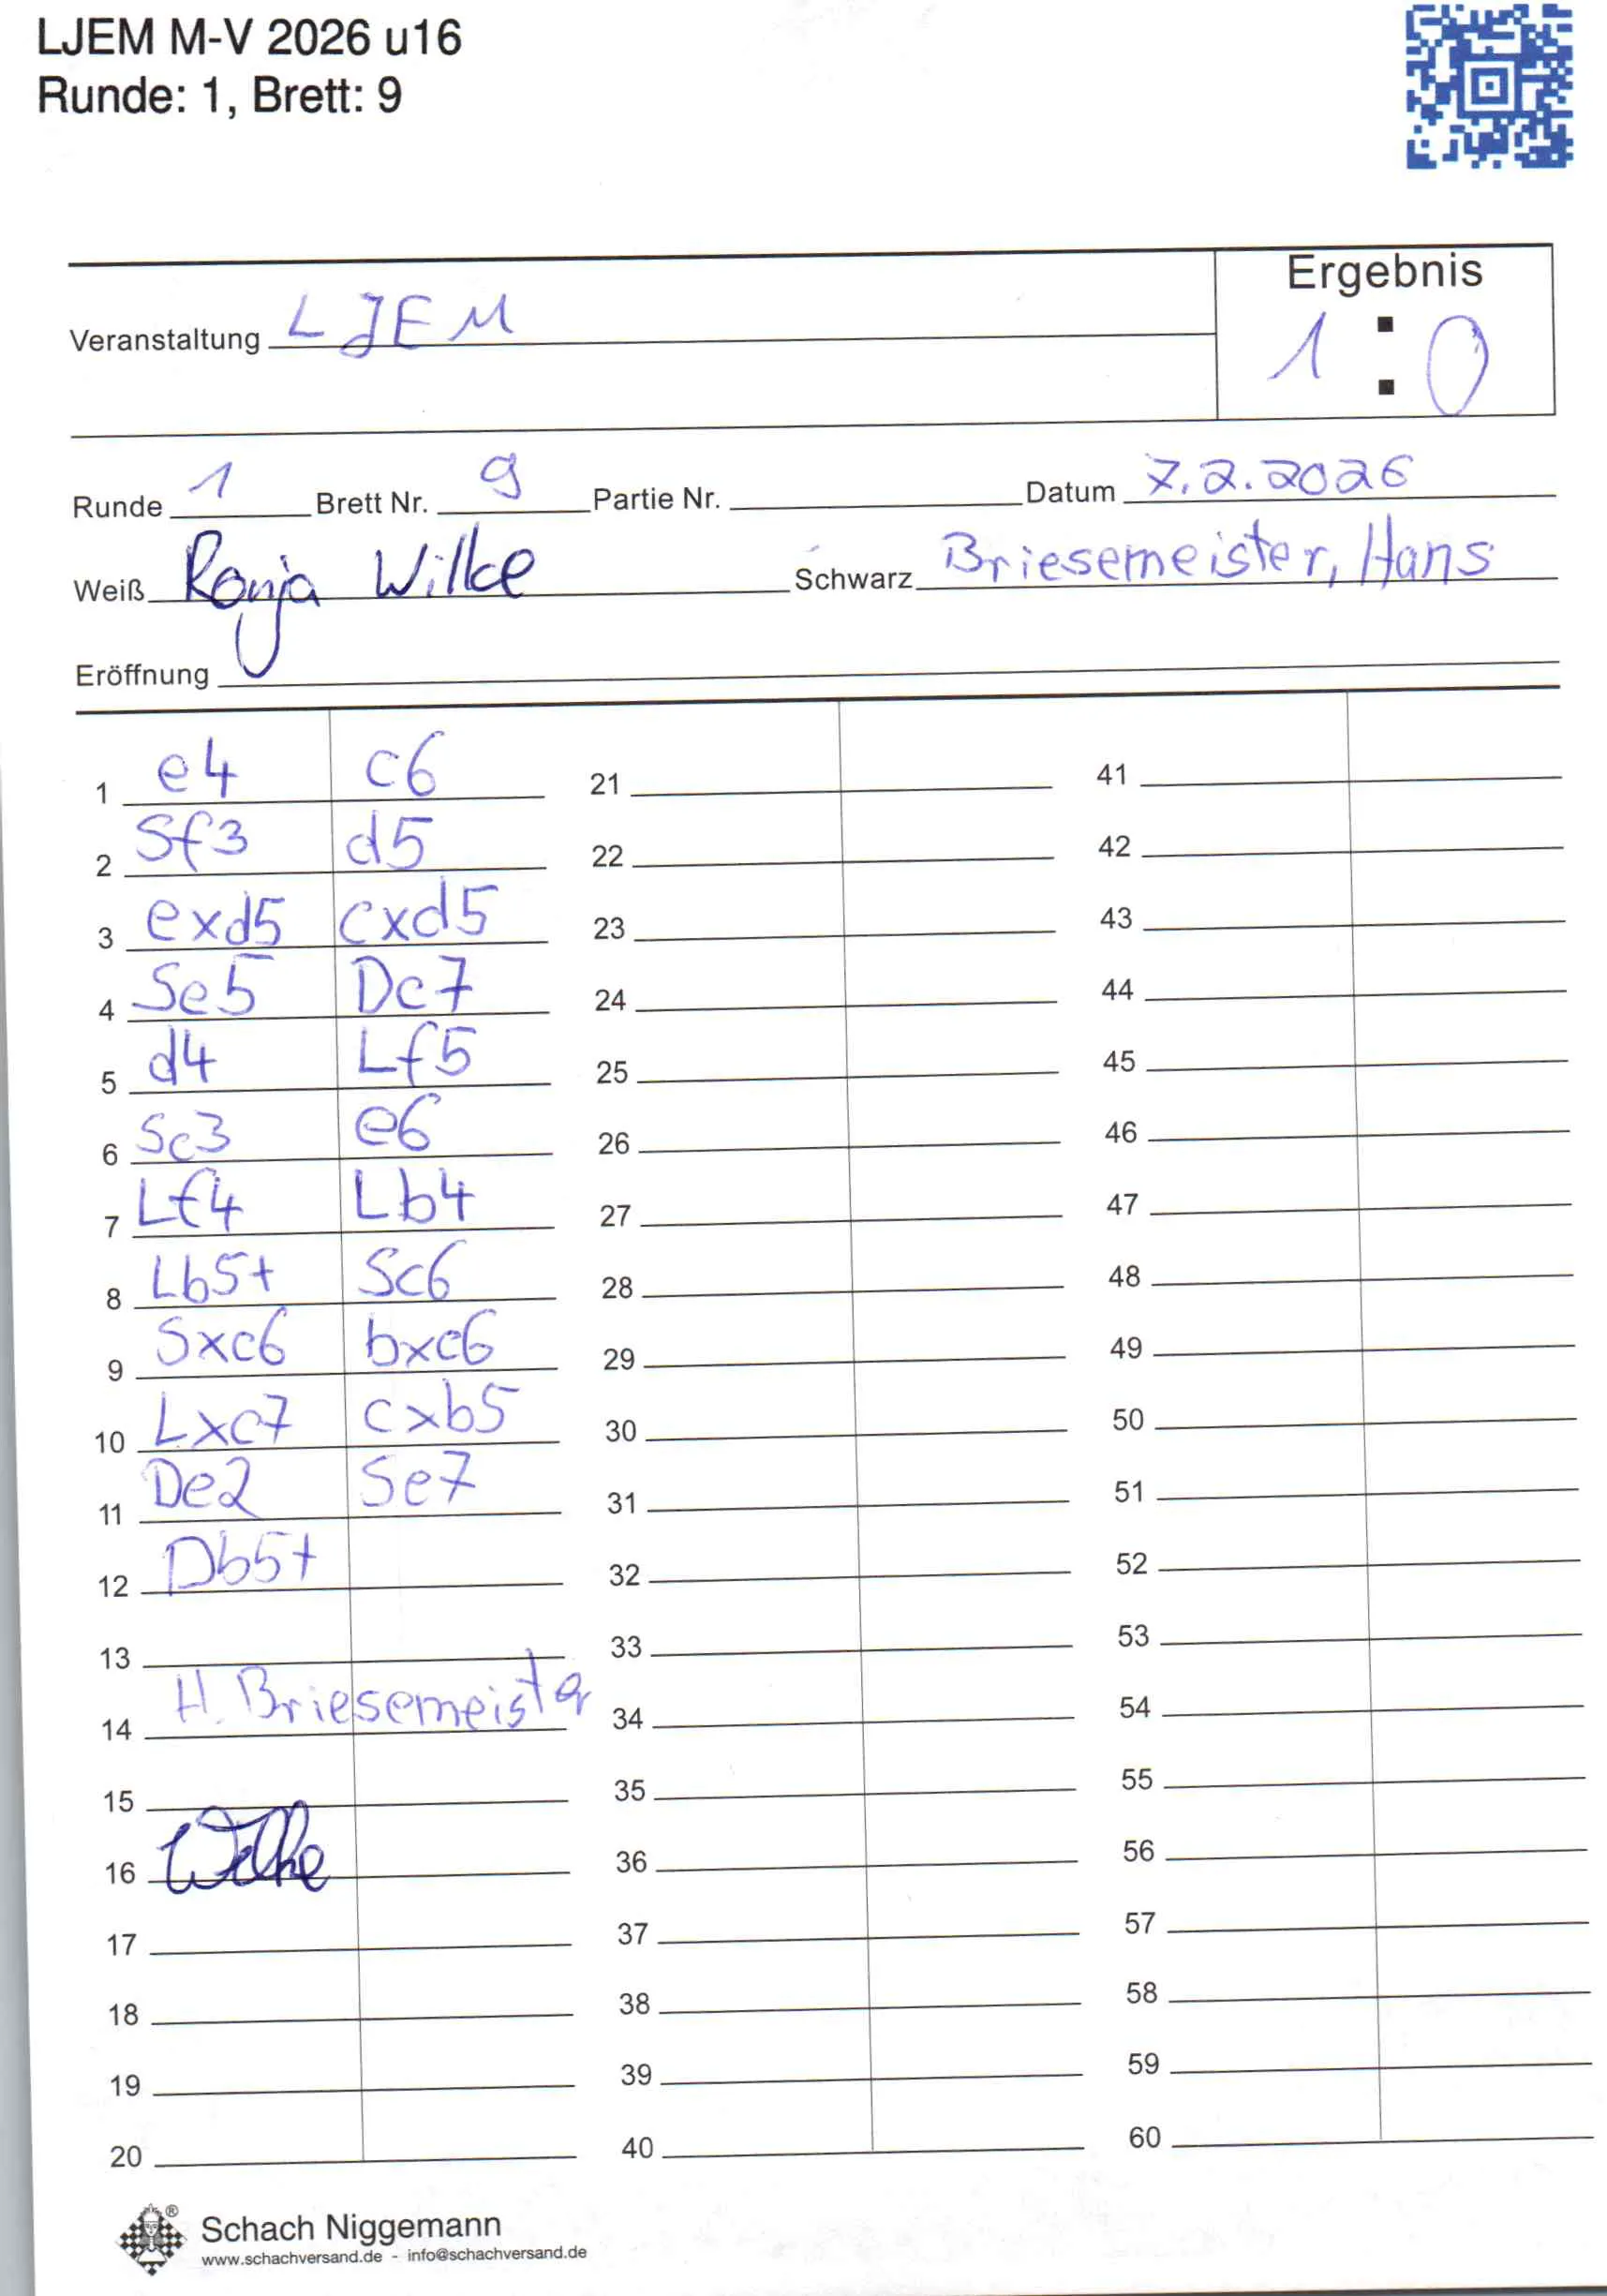 LJEM M-V 2026 u16
Runde: 1, Brett: 9
Ergebnis
Veranstaltung LJEM
1 : 0
Runde 1 Brett Nr. 9 Partie Nr. Datum 7.2.2026
Weiß Ronja Wilke Schwarz Briesemeister, Hans
Eröffnung
1 e4 c6 21 41
2 Sf3 d5 22 42
3 exd5 cxd5 23 43
4 Se5 Dc7 24 44
5 d4 Lf5 25 45
6 Sc3 e6 26 46
7 Lf4 Lb4 27 47
8 Lb5+ Sc6 28 48
9 Sxc6 bxc6 29 49
10 Lxc7 cxb5 30 50
11 De2 Se7 31 51
12 Db5+ 32 52
13 33 53
14 H. Briesemeister 34 54
15 35 55
16 Wilke 36 56
17 37 57
18 38 58
19 39 59
20 40 60
Schach Niggemann
www.schachversand.de - info@schachversand.de